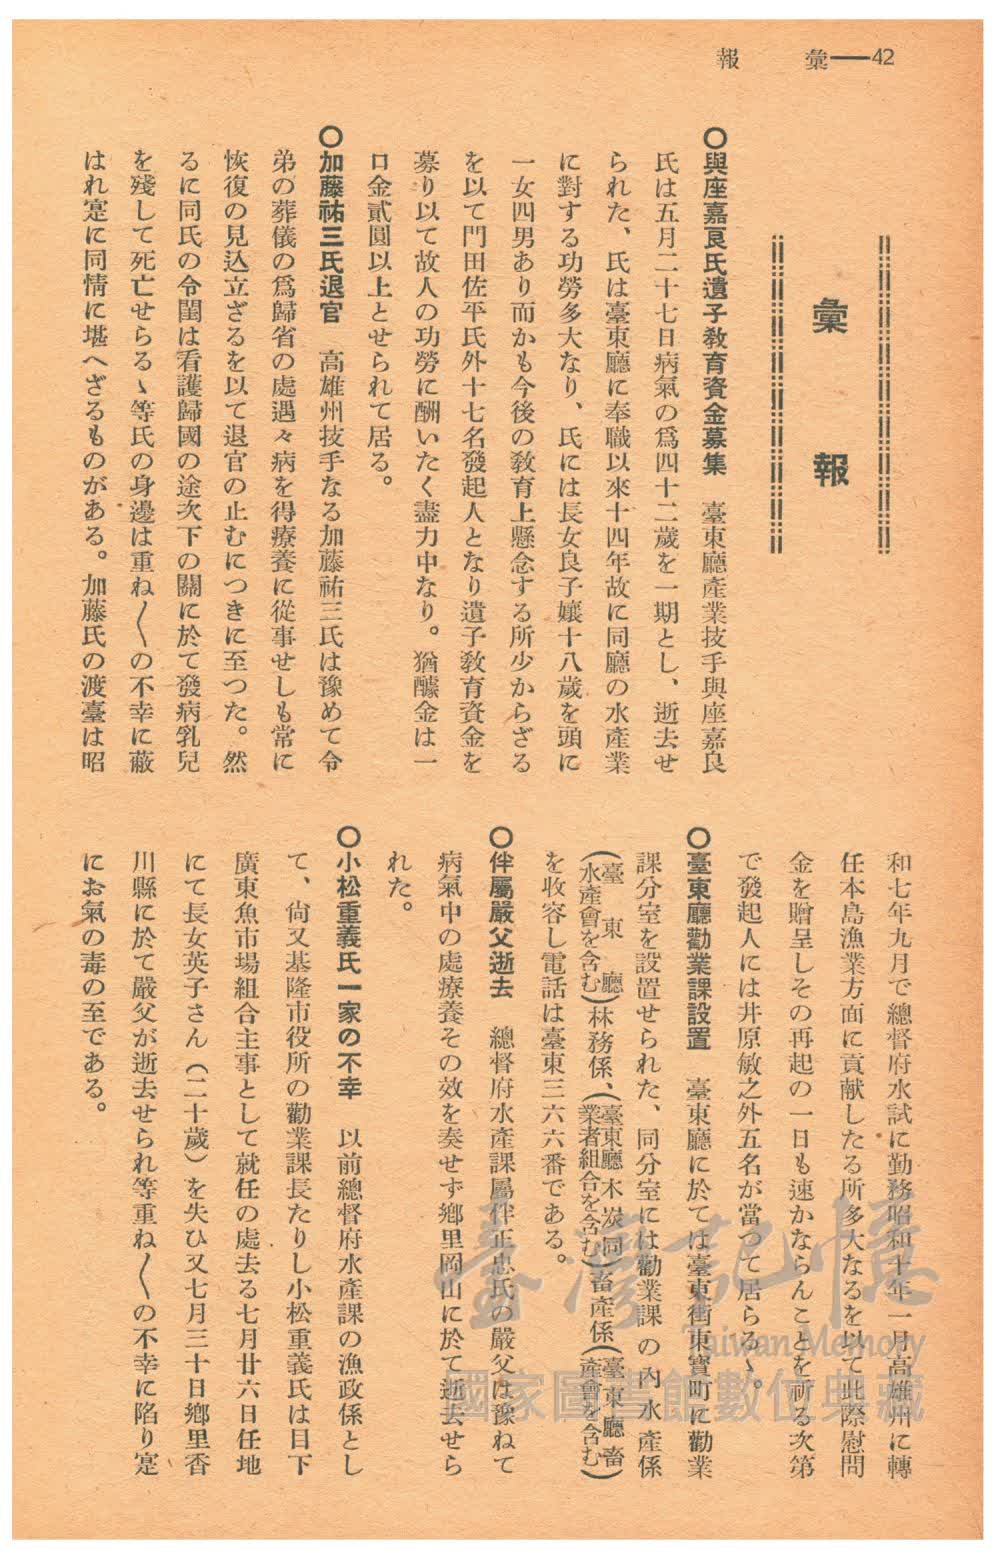 彙報——42
彙報
〇與座嘉良氏遺子教育資金募集　臺東廳產業技手與座嘉良
氏は五月二十七日病氣の爲四十二歲を一期とし、逝去せ
られた、氏は臺東廳に奉職以來十四年故に同廳の水產業
に對する功勞多大なり、氏には長女良子孃十八歲を頭に
一女四男あり而かも今後の教育上懸念する所少からざる
を以て門田佐平氏外十七名發起人となり遺子教育資金を
募り以て故人の功勞に酬いたく盡力中なり。猶醵金は一
口金貳圓以上とせられて居る。
〇加藤祐三氏退官　高雄州技手なる加藤祐三氏は豫めて令
弟の葬儀の爲歸省の處遇々病を得療養に從事せしも常に
恢復の見込立ざるを以て退官の止むにつきに至つた。然
るに同氏の令閨は看護歸國の途次下の關に於て發病乳兒
を殘して死亡せらるゝ等氏の身邊は重ね〱の不幸に蔽
はれ寔に同情に堪へざるものがある。加藤氏の渡臺は昭
和七年九月で總督府水試に勤務昭和十年一月高雄州に轉
任本島漁業方面に貢献したる所多大なるを以て此際慰問
金を贈呈しその再起の一日も速かならんことを祈る次第
で發起人には井原敏之外五名が當つて居らるゝ。
〇臺東廳勸業課設置　臺東廳に於ては臺東街東寶町に勸業
課分室を設置せられた、同分室には勸業課の內水產係
(臺東廳水產會を含む)林務係、(臺東廳木炭同業者組合を含む)畜產係(臺東廳畜產會を含む)
を收容し電話は臺東三六六番である。
〇伴屬嚴父逝去　總督府水產課屬伴正忠氏の嚴父は豫ねて
病氣中の處療養その效を奏せず鄉里岡山に於て逝去せら
れた。
〇小松重義氏一家の不幸　以前總督府水產課の漁政係とし
て、尙又基隆市役所の勸業課長たりし小松重義氏は目下
廣東魚市場組合主事として就任の處去る七月廿六日任地
にて長女英子さん(二十歲)を失ひ又七月三十日鄉里香
川縣に於て嚴父が逝去せられ等重ね〱の不幸に陷り寔
にお氣の毒の至である。
臺灣記憶
Taiwan Memory
國家圖書館數位典藏